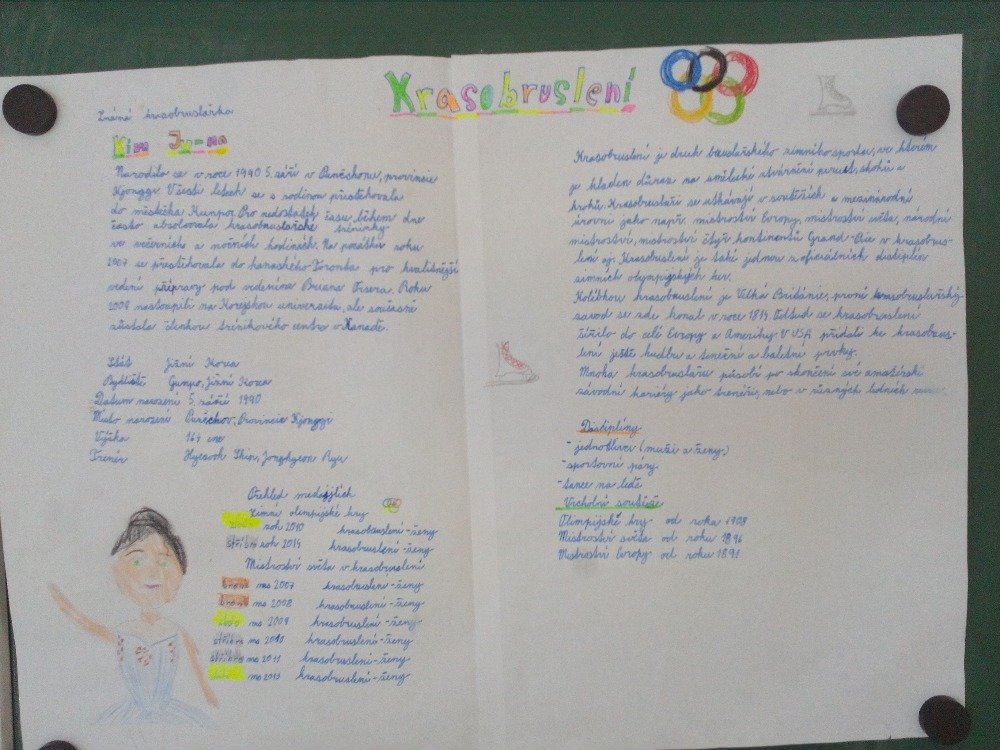 Krasobruslení
Známá krasobruslařka
Kim Ju-na
Narodila se v roce 1990 5. září v Puričhonu, provincie
Kjonggi. V šesti letech se s rodinou přestěhovala
do městečka Kunpo. Pro nedostatek času během dne
často absolvovala krasobruslařské tréninky
ve večerních a nočních hodinách. Na počátku roku
2007 se přestěhovala do kanadského Toronta pro kvalitnější
vedení přípravy pod vedením Briana Orsera. Roku
2009 nastoupila na Korejskou univerzitu, ale současně
zůstala členkou tréninkového centra v Kanadě.
Stát Jižní Korea
Bydliště Gunpo, Jižní Korea
Datum narození 5. září 1990
Místo narození Puričhov, Provincie Kjonggi
Výška 164 cm
Trenér Hyesook Shin, Jonghyeon Ryu
Přehled medailích
Zimní olimpijské hry
zlato rok 2010 krasobruslení - ženy
stříbro rok 2014 krasobruslení - ženy
Mistroství světa v krasobruslení
bronz ms 2007 krasobruslení - ženy
bronz ms 2008 krasobruslení - ženy
zlato ms 2009 krasobruslení - ženy
stříbro ms 2010 krasobruslení - ženy
stříbro ms 2011 krasobruslení - ženy
zlato ms 2013 krasobruslení - ženy
Krasobruslení je druh bruslařského zimního sportu, ve kterém
je kladen důraz na umělecké ztvárnění piruet, skoků a
kroků. Krasobruslaři se utkávají v soutěžích a mezinárodní
úrovni jako např. mistroství Evropy, mistroství světa, národní
mistroství, mistroství čtyř kontinentů Grand-Prix v krasobrus-
lení aj. Krasobruslení je také jednou z oficiálních disciplín
zimních olympijských her.
Kolébkou krasobruslení je Velká Británie, první krasobruslařský
závod se zde konal v roce 1814. Odtud se krasobruslení
šířilo do celé Evropy a Ameriky. V USA přidali ke krasobrus-
lení ještě hudbu a taneční a baletní prvky.
Mnoho krasobruslařů působí po skončení své amatérské
závodní kariéry jako trenéři, nebo v různých ledních
Disciplíny
- jednotlivci (muži a ženy)
- sportovní páry
- tance na ledě
Vrcholní soutěže
Olimpijské hry od roka 1908
Mistroství světa od roku 1896
Mistroství Evropy od roku 1891